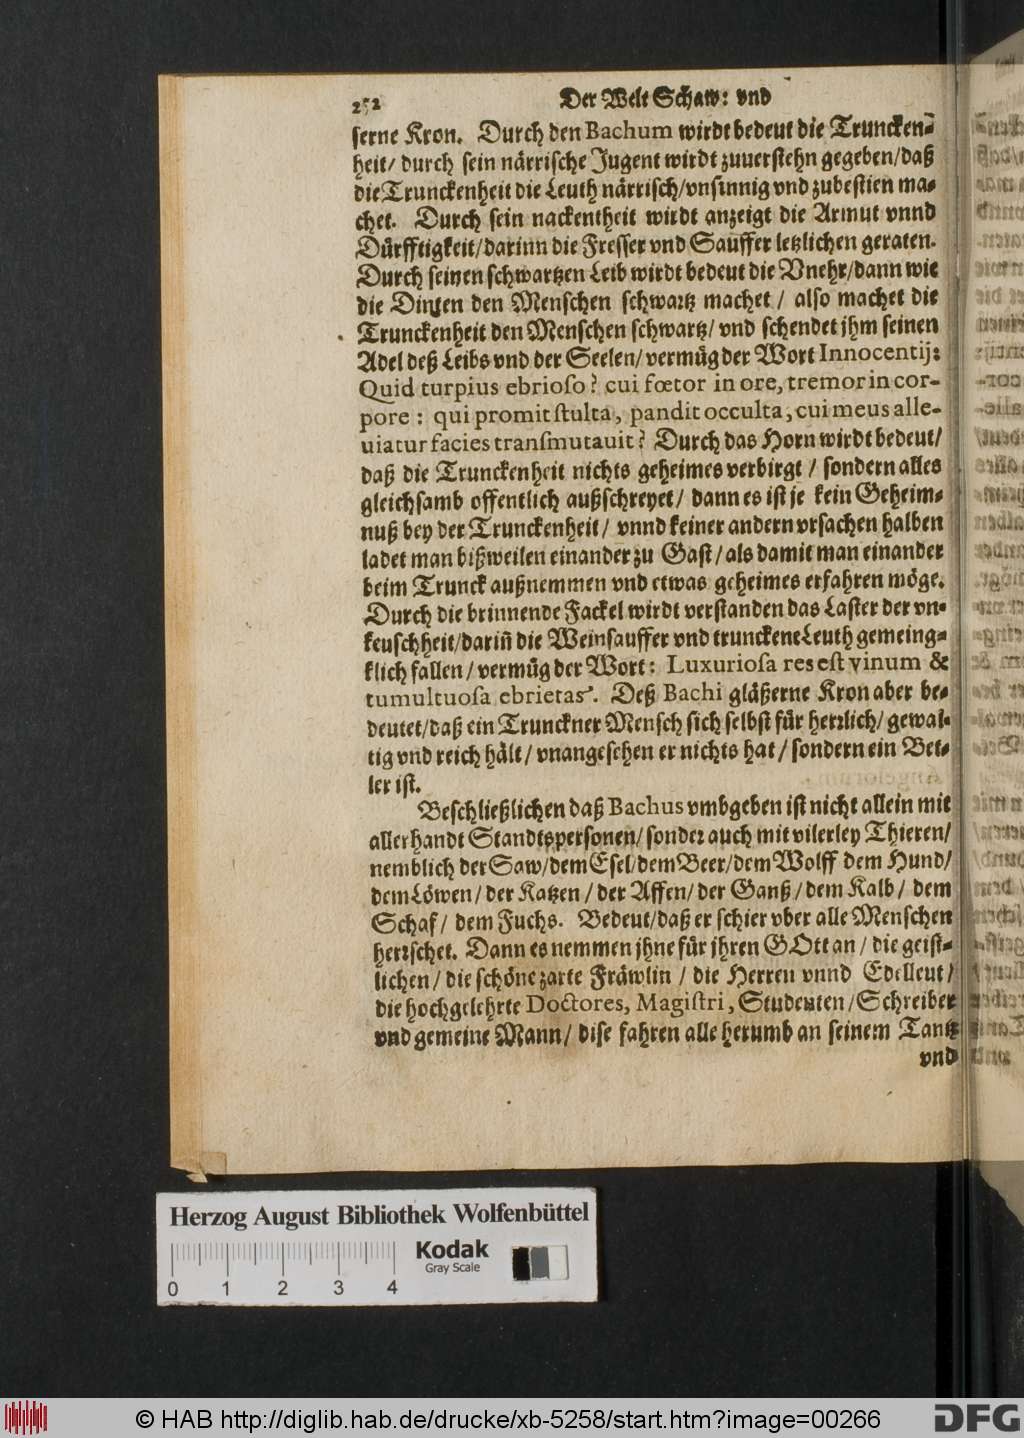 252 Der Welt Schaw: vnd
serne Kron. Durch den Bachum wirdt bedeut die Truncken-
heit/ durch sein närrische Jugent wirdt zuuerstehn gegeben/daß
die Trunckenheit die Leuth närrisch/vnsinnig vnd zubestien ma-
chet. Durch sein nackentheit wirdt anzeigt die Armut vnnd
Dürfftigkeit/darinn die Fresser vnd Sauffer letzlichen geraten.
Durch seinen schwartzen Leib wirdt bedeut die Vnehr/dann wie
die Dinten den Menschen schwartz machet / also machet die
Trunckenheit den Menschen schwartz/ vnd schendet jhm seinen
Adel deß Leibs vnd der Seelen/ vermüg der Wort Innocentij:
Quid turpius ebrioſo? cui fœtor in ore, tremor in cor-
pore : qui promit ſtulta, pandit occulta, cui meus alle-
uiatur facies tranſmutauit? Durch das Horn wirdt bedeut/
daß die Trunckenheit nichts geheimes verbirgt / sondern alles
gleichsamb offentlich außschreyet/ dann es ist je kein Geheim-
nuß bey der Trunckenheit/ vnnd keiner andern vrsachen halben
ladet man bißweilen einander zu Gast/als damit man einander
beim Trunck außnemmen vnd etwas geheimes erfahren möge.
Durch die brinnende Fackel wirdt verstanden das Laster der vn-
keuschheit/darin̄ die Weinsauffer vnd trunckene Leuth gemeing-
klich fallen / vermüg der Wort: Luxurioſa res eſt vinum &
tumultuoſa ebrietas. Deß Bachi gläßerne Kron aber be-
deutet/daß ein Trunckner Mensch sich selbst für herrlich/ gewal-
tig vnd reich hält/ vnangesehen er nichts hat/ sondern ein Bet-
ler ist.
Beschließlichen daß Bachus vmbgeben ist nicht allein mit
allerhandt Standtspersonen/ sonder auch mit vilerley Thieren/
nemblich der Saw/dem Esel/dem Beer/dem Wolff dem Hund/
dem Löwen/ der Katzen / der Affen/ der Ganß/ dem Kalb/ dem
Schaf/ dem Fuchs. Bedeut/daß er schier vber alle Menschen
herrschet. Dann es nemmen jhne für jhren GOtt an/ die geist-
lichen/ die schöne zarte Fräwlin / die Herren vnnd Edelleut/
die hochgelehrte Doctores, Magiſtri, Studenten/Schreiber
vnd gemeine Mann/ dise fahren alle herumb an seinem Tantz
vnd
Herzog August Bibliothek Wolfenbüttel
Kodak
Gray Scale
0 1 2 3 4
© HAB http://diglib.hab.de/drucke/xb-5258/start.htm?image=00266
DFG